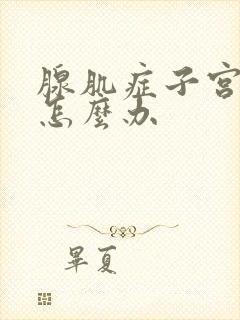 腺肌症子宫
怎麼办
畢夏